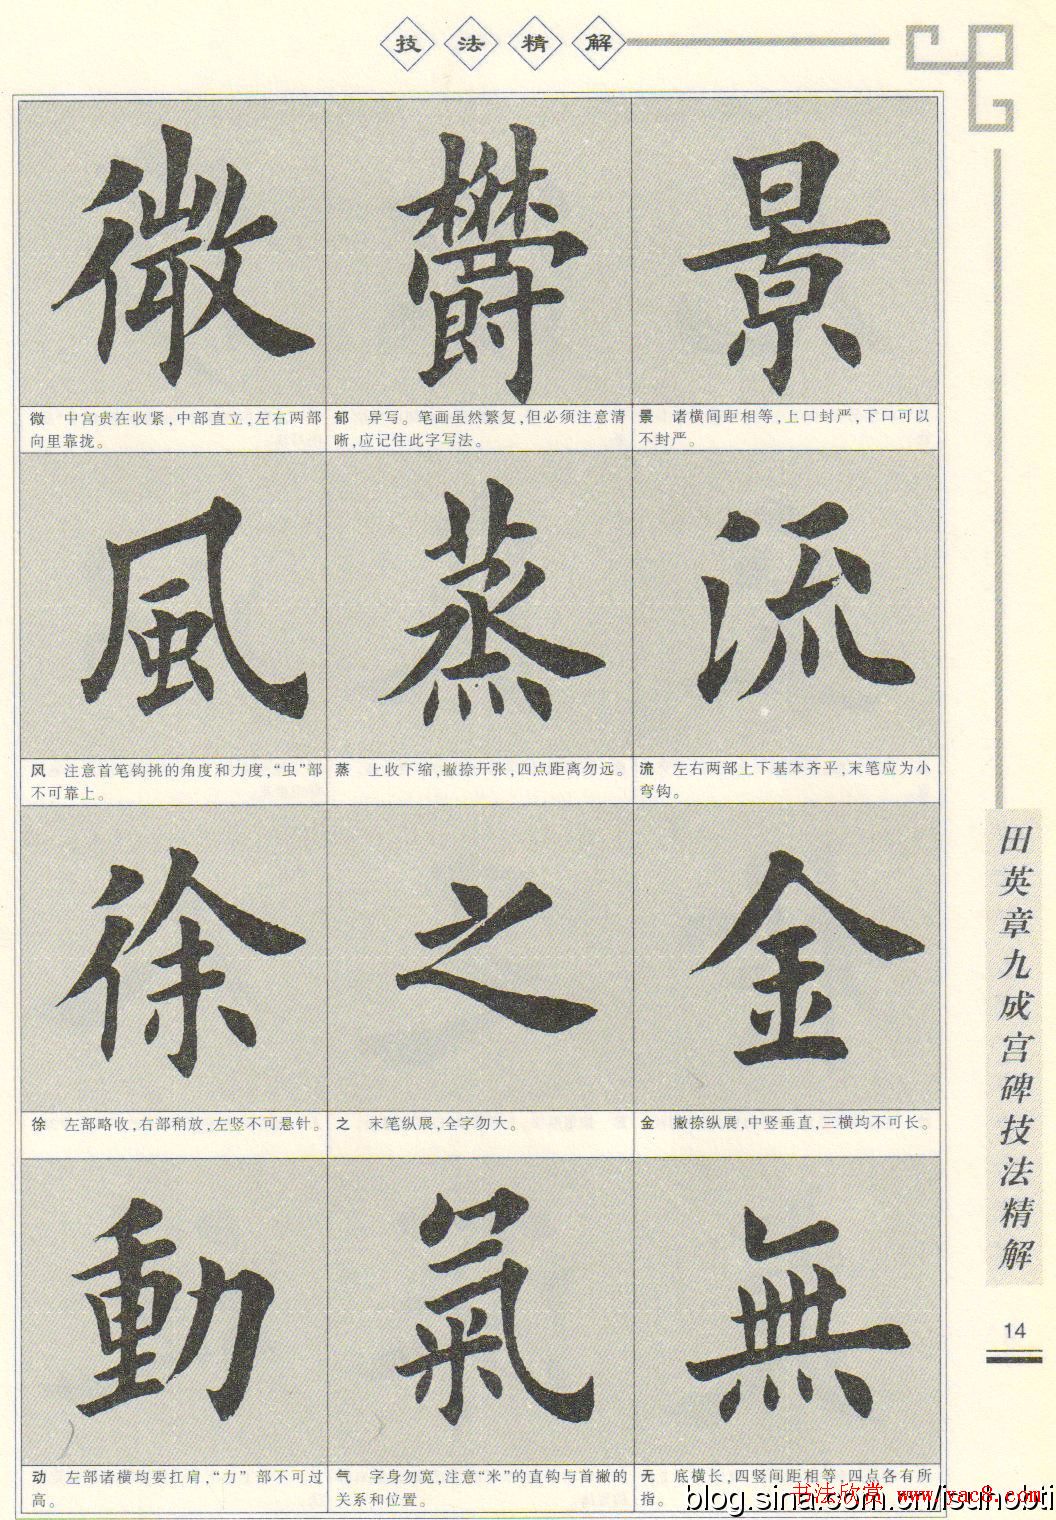 技法精解
徵 欝 景
微　中宫贵在收紧,中部直立,左右两部
向里靠拢。
郁　异写。笔画虽然繁复,但必须注意清
晰,应记住此字写法。
景　诸横间距相等,上口封严,下口可以
不封严。
風 蒸 流
风　注意首笔钩挑的角度和力度,“虫”部
不可靠上。
蒸　上收下缩,撇捺开张,四点距离勿远。
流　左右两部上下基本齐平,末笔应为小
弯钩。
徐 之 金
徐　左部略收,右部稍放,左竖不可悬针。
之　末笔纵展,全字勿大。
金　撇捺纵展,中竖垂直,三横均不可长。
動 氣 無
动　左部诸横均要扛肩,“力”部不可过
高。
气　字身勿宽,注意“米”的直钩与首撇的
关系和位置。
无　底横长,四竖间距相等,四点各有所
指。
田英章九成宫碑技法精解
14
书法欣赏 www.yac8.com